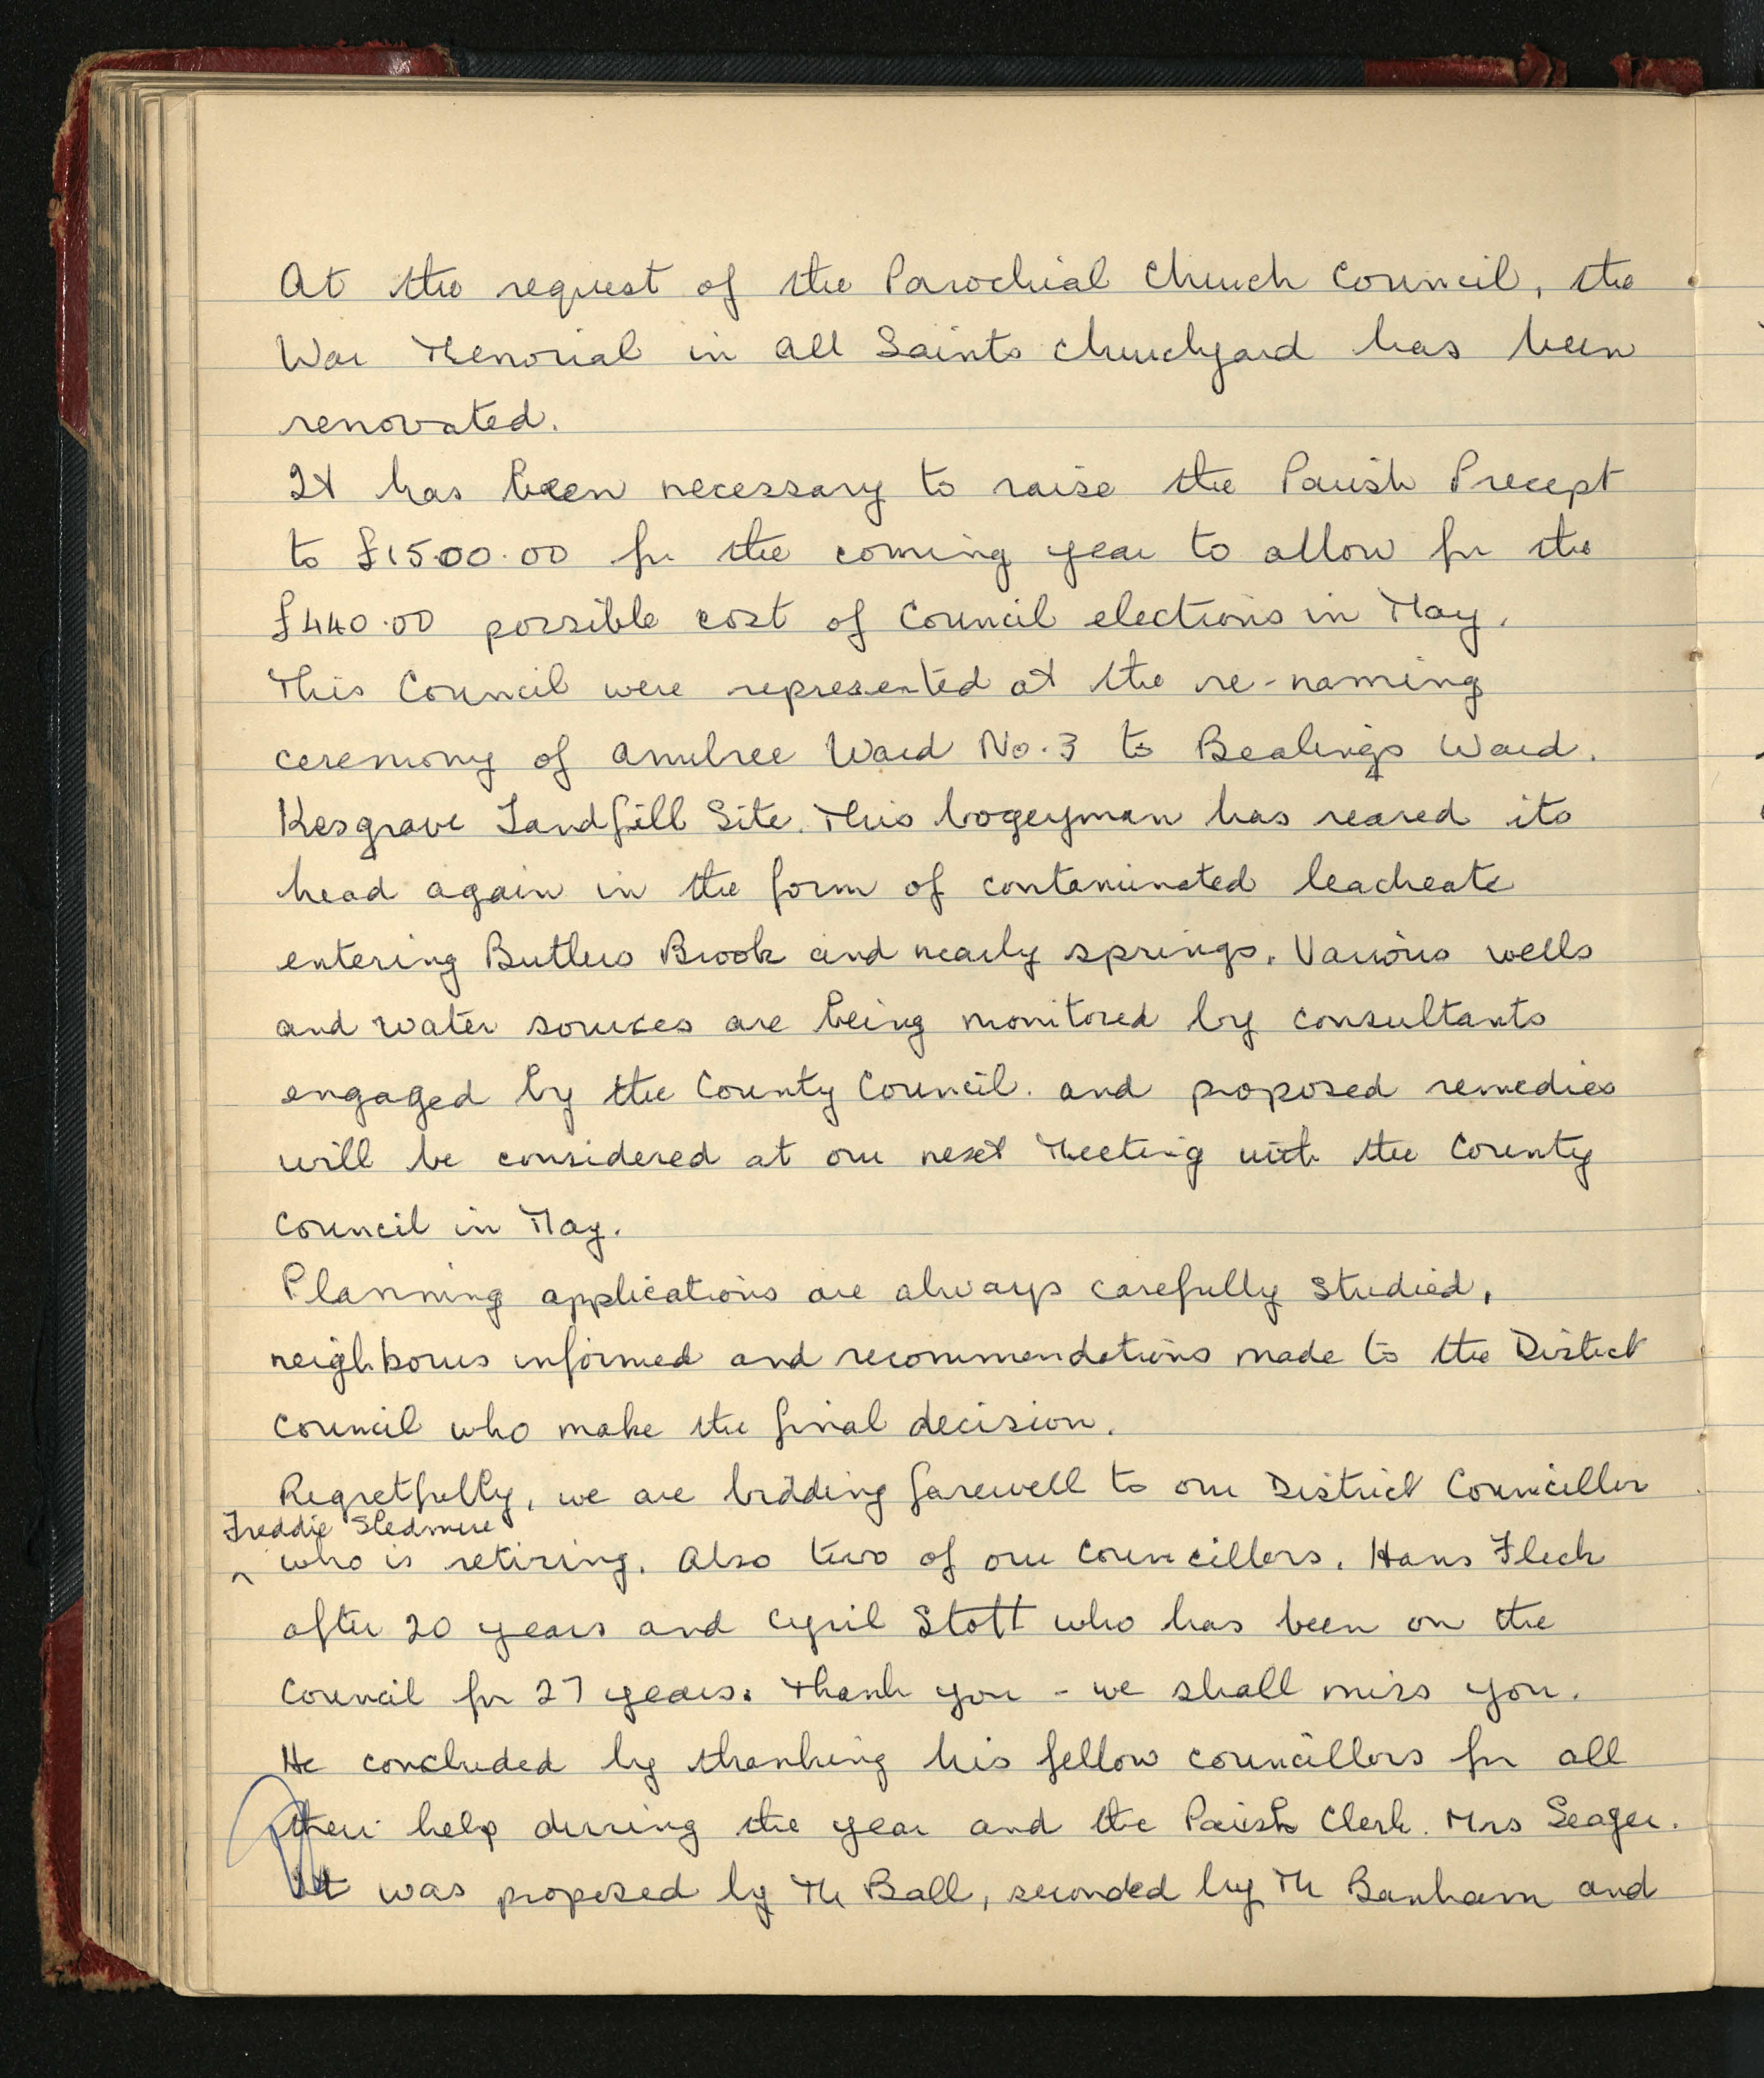 At the request of the Parochial Church Council, the
War Memorial in All Saints Churchyard has been
renovated.
It has been necessary to raise the Parish Precept
to £1500.00 for the coming year to allow for the
£440.00 possible cost of Council elections in May.
This Council were represented at the re-naming
ceremony of Ward No.3 to Bealings Ward.
Kesgrave Landfill Site. This bogeyman has reared its
head again in the form of contaminated leacheate
entering Butlers Brook and nearby springs. Various wells
and water sources are being monitored by consultants
engaged by the County Council. and proposed remedies
will be considered at our next Meeting with the County
Council in May.
Planning applications are always carefully studied,
neighbours informed and recommendations made to the District
Council who make the final decision.
Regretfully, we are bidding farewell to our District Councillor
Freddie Sledmere
^ who is retiring. Also two of our Councillors. Hans Fleck
after 20 years and Cyril Stott who has been on the
Council for 27 years. Thank you - we shall miss you.
He concluded by thanking his fellow councillors for all
their help during the year and the Parish Clerk. Mrs Seager.
It was proposed by Mr Ball, seconded by Mr Banham and